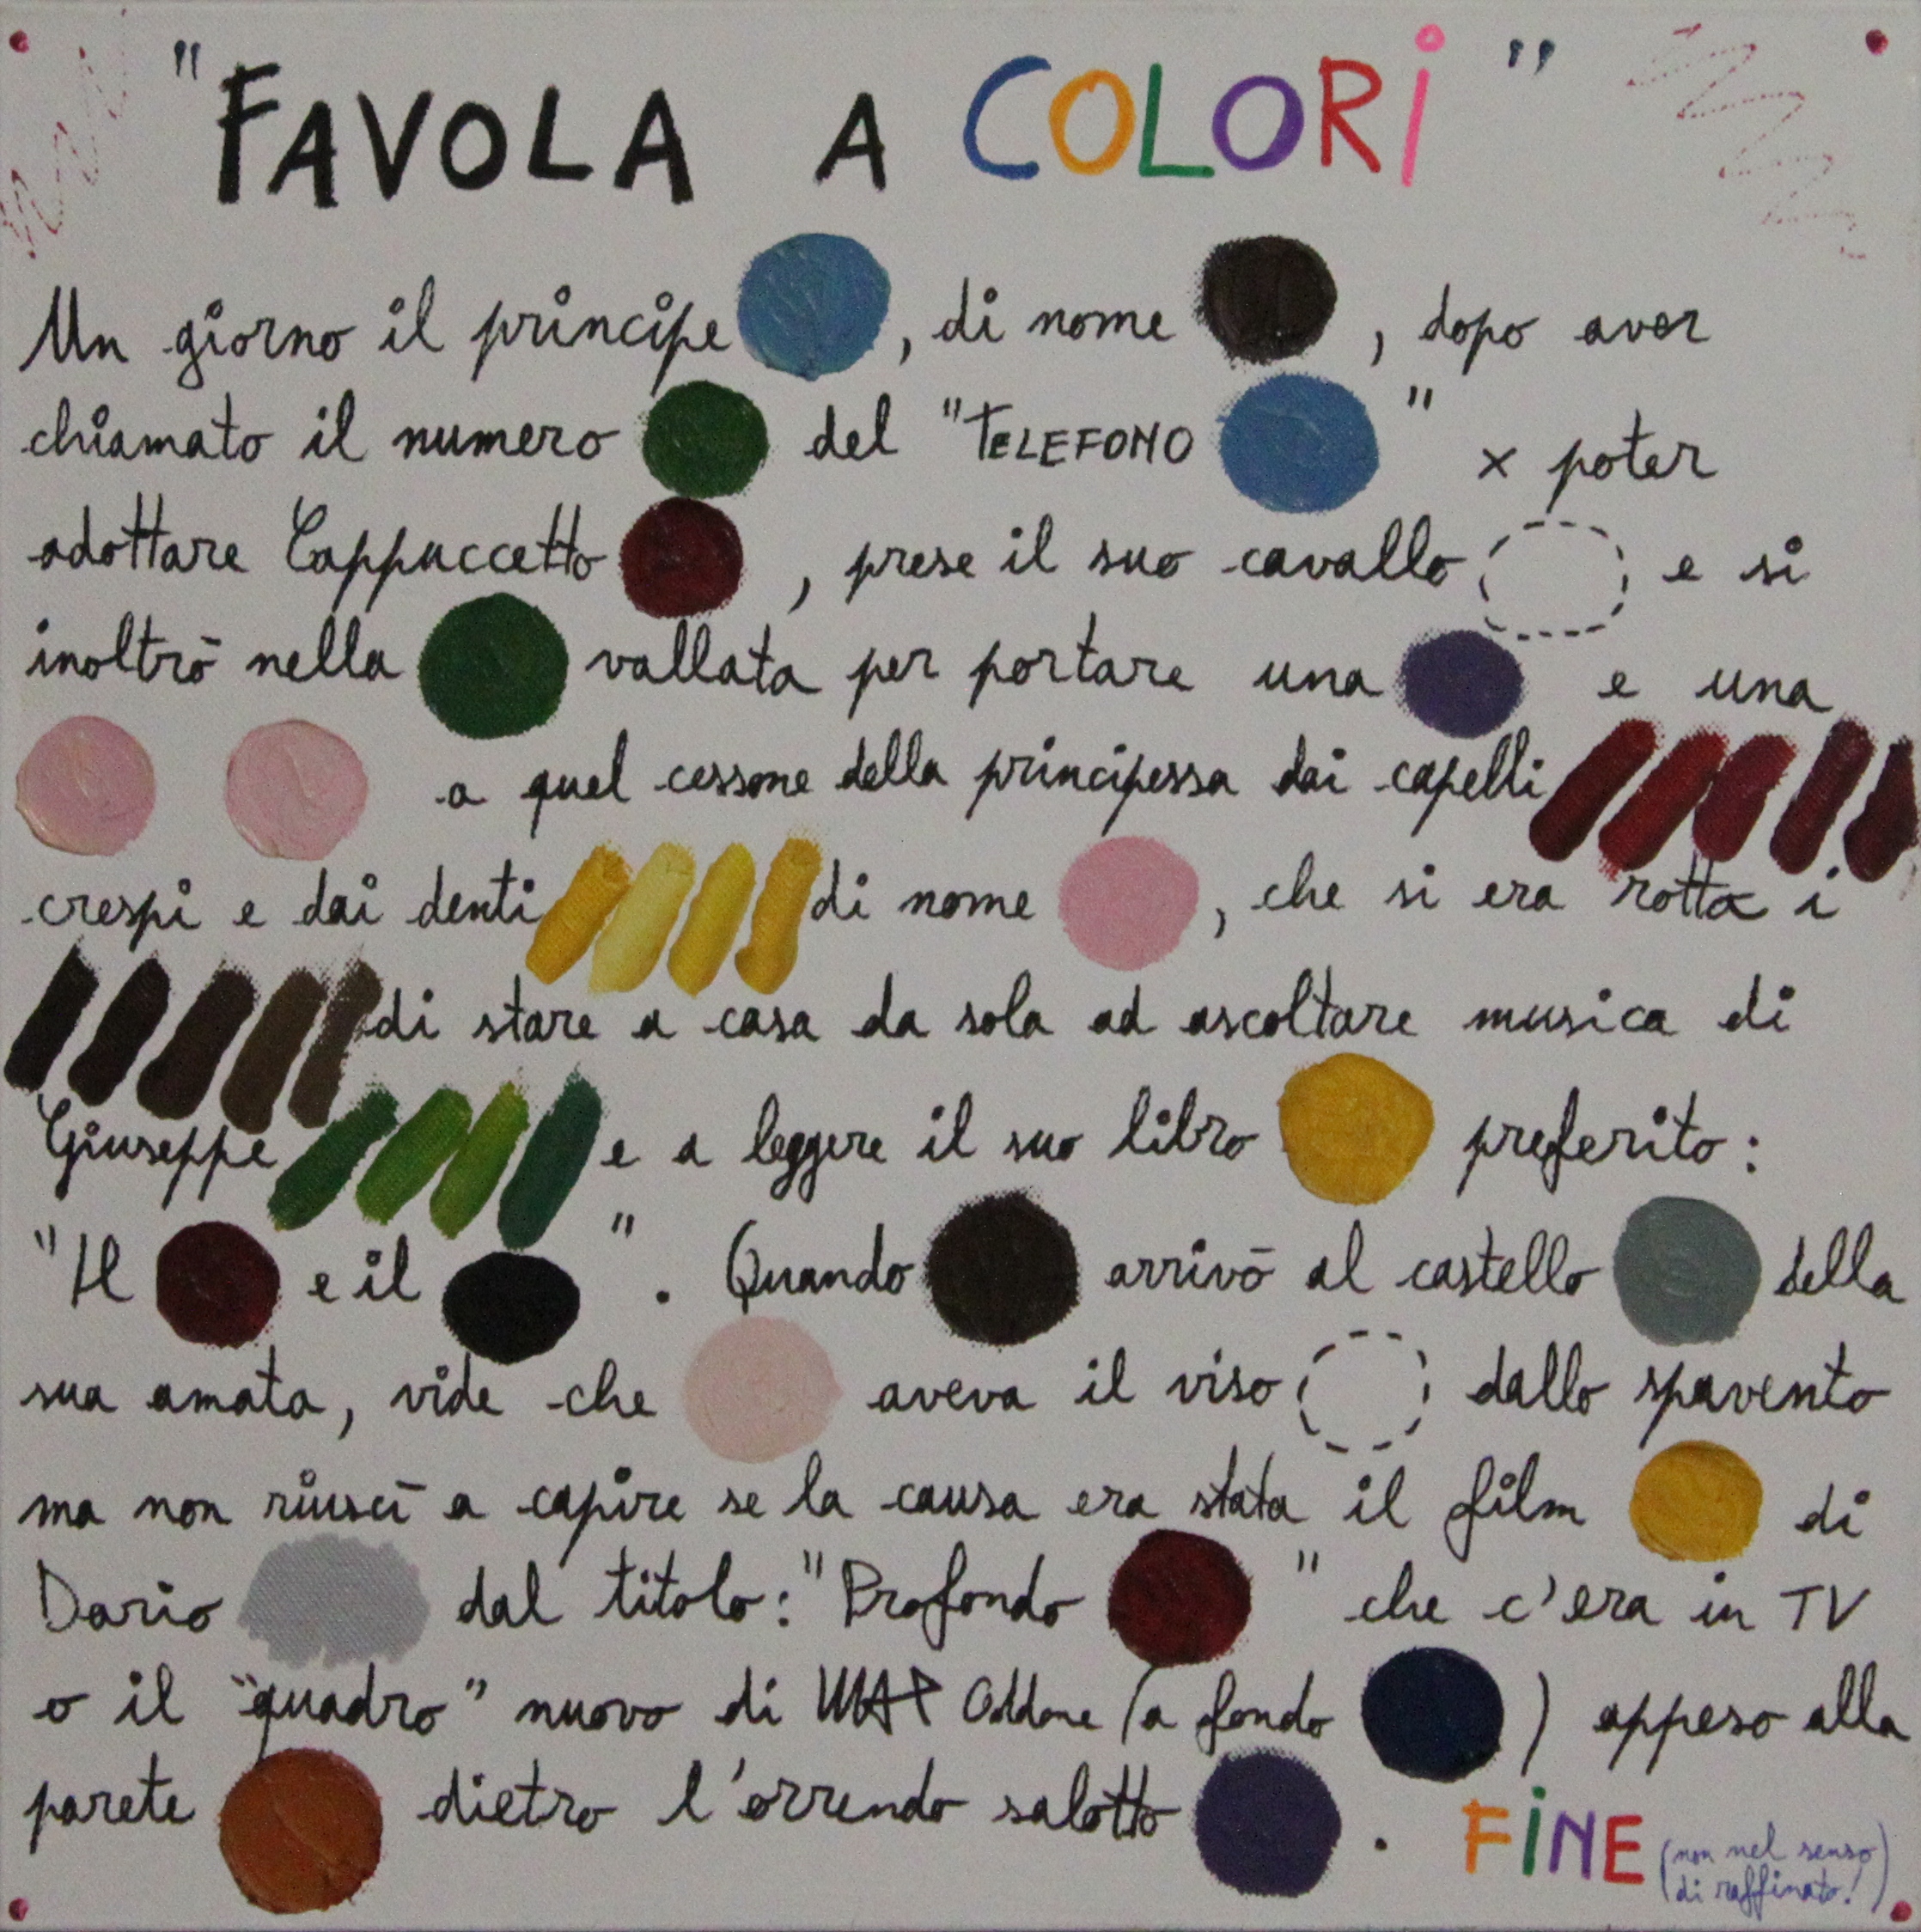 "FAVOLA A COLORi"
Un giorno il principe , di nome , dopo aver
chiamato il numero del "TELEFONO " x poter
adottare Cappuccetto , prese il suo cavallo e si
inoltrò nella vallata per portare una e una
a quel cessone della principessa dai capelli
crespi e dai denti di nome , che si era rotta i
di stare a casa da sola ad ascoltare musica di
Giuseppe e a leggere il suo libro preferito:
"Il e il ". Quando arrivò al castello della
sua amata, vide che aveva il viso dallo spavento
ma non riuscì a capire se la causa era stata il film di
Dario dal titolo: "Profondo " che c'era in TV
o il "quadro" nuovo di Oddone (a fondo ) appeso alla
parete dietro l'orrendo salotto .
FiNE (non nel senso
di raffinato!)